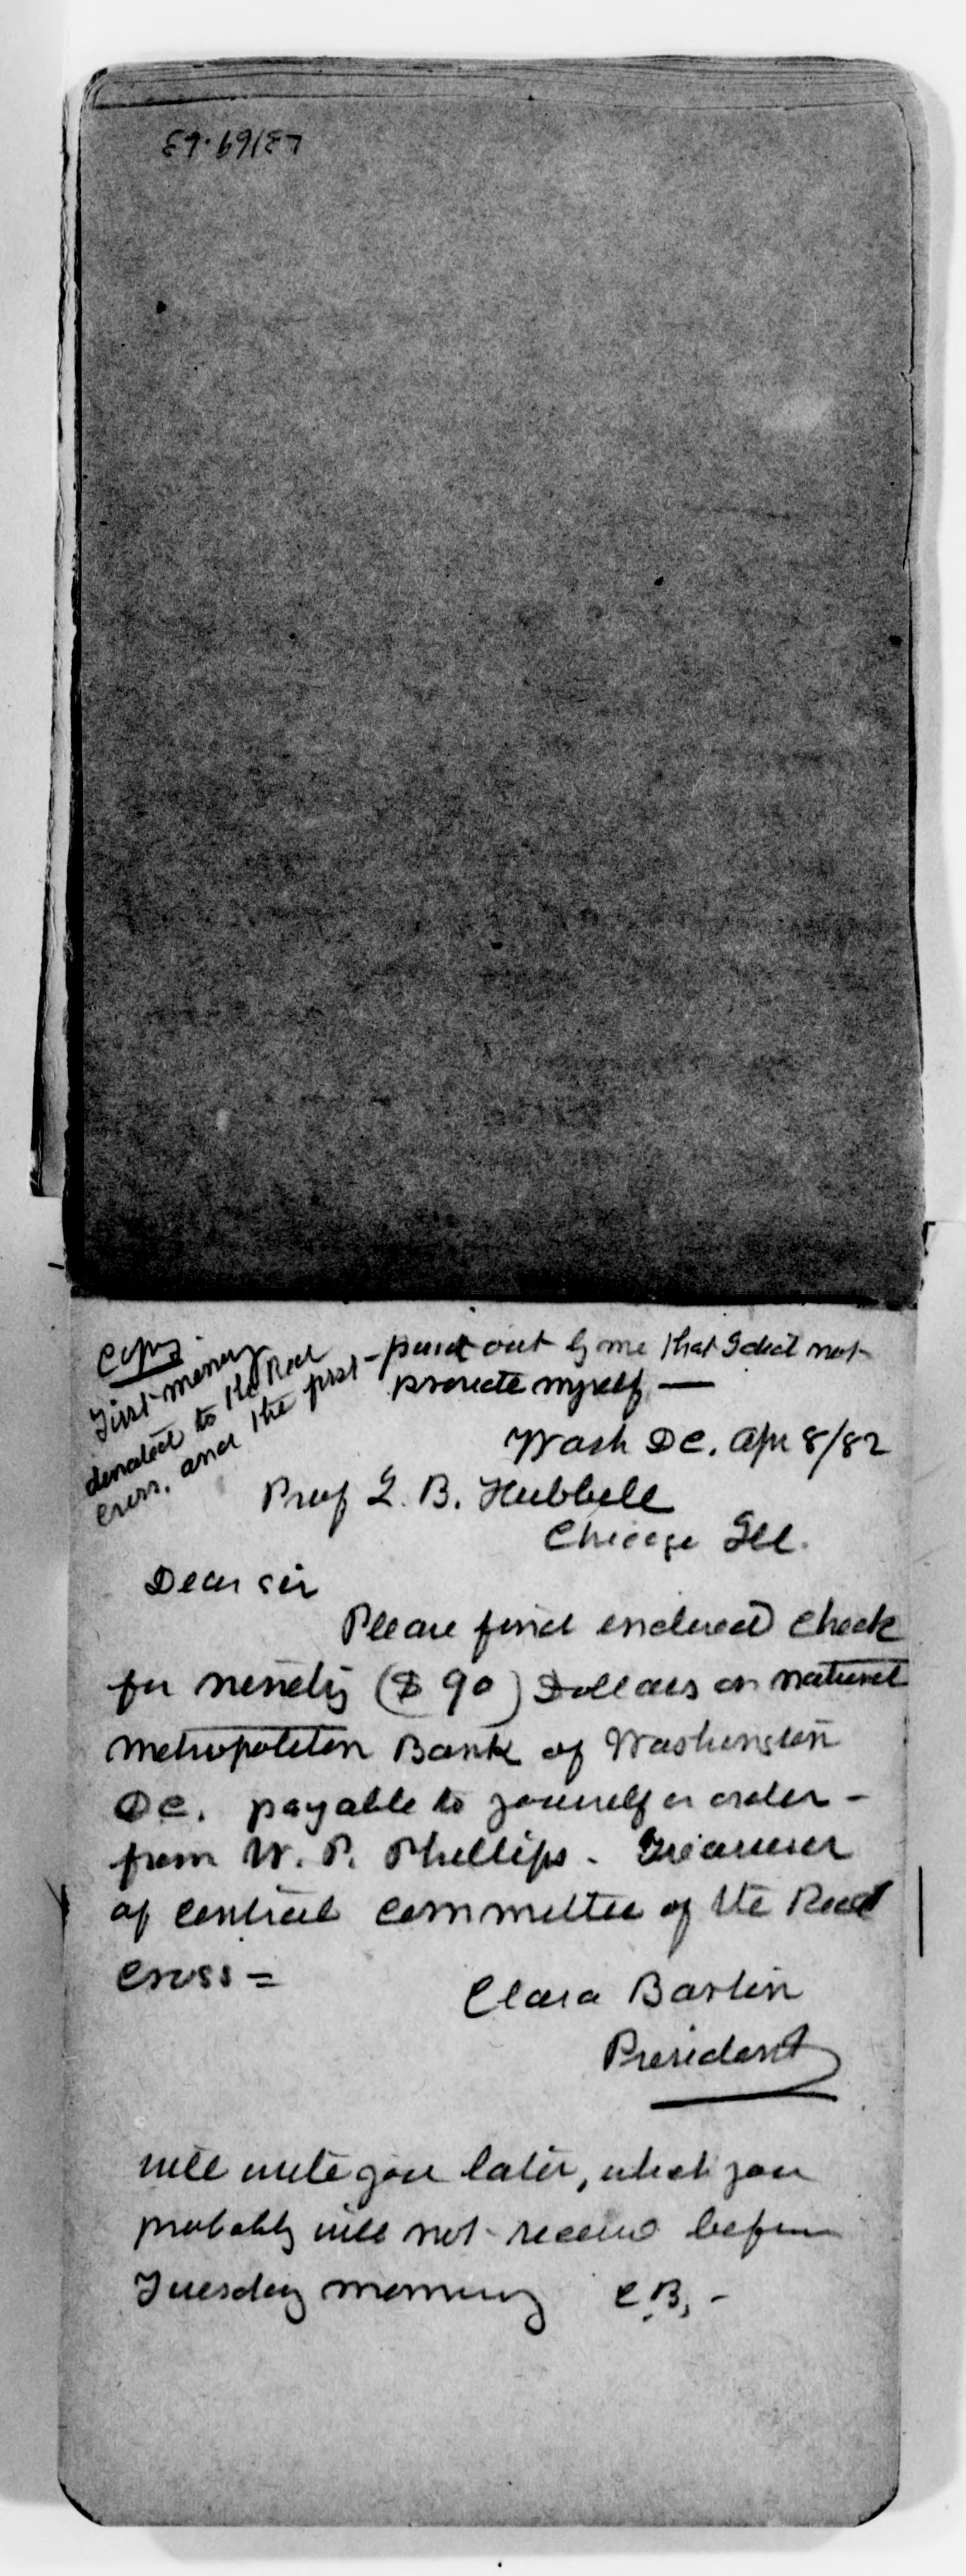 Copy
First money
donated to the Red
Cross, and the first - paid out by me that I did not
provide myself —
Wash DC. Apr 8/82
Prof J. B. Hubbell
Chicago Ill.
Dear sir
Please find enclosed check
for ninety ($90) Dollars on National
Metropolitan Bank of Washington
DC. payable to yourself or order -
from W. P. Phillips - Treasurer
of central committee of the Red
Cross =
Clara Barton
President
will write you later, which you
probably will not receive before
Tuesday morning C.B. -